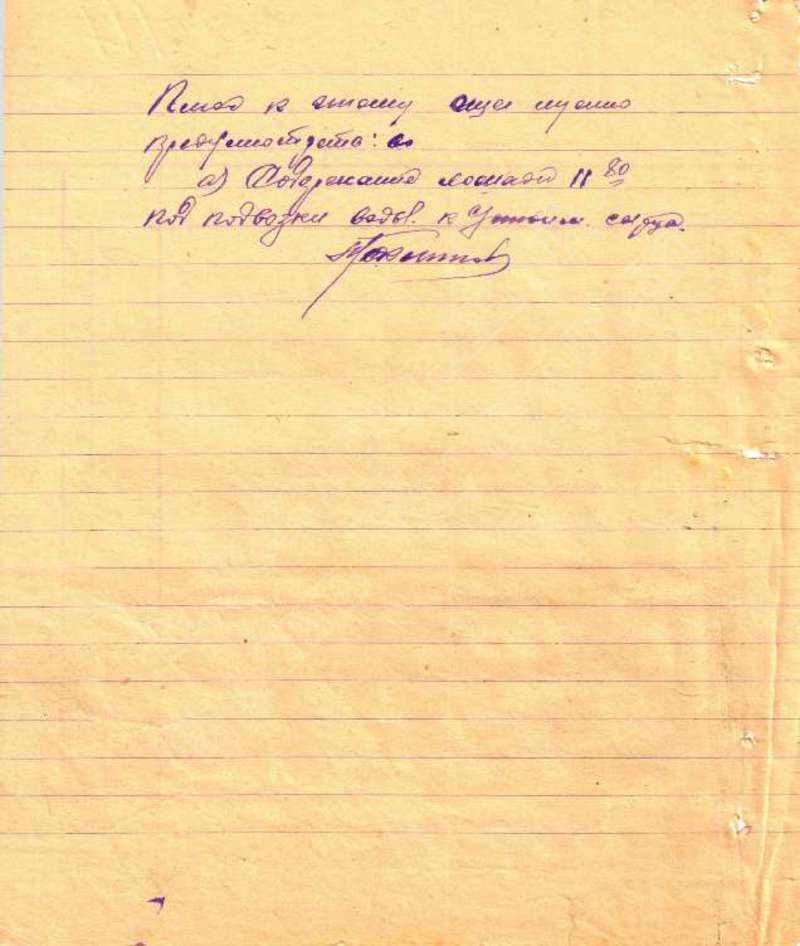 Плюс к этому еще нужно
предусмотреть:
а) Содержание лошади 11 80
под подвозки воды к